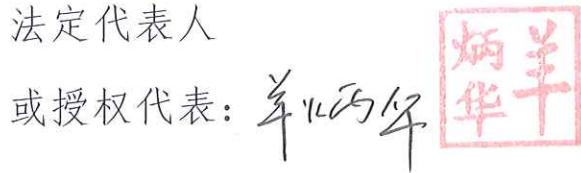 法定代表人
或授权代表：羊炳华
羊炳华